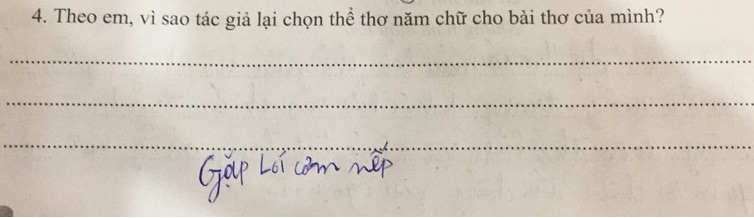 4. Theo em, vì sao tác giả lại chọn thể thơ năm chữ cho bài thơ của mình?
Gặp Lá cơm nếp